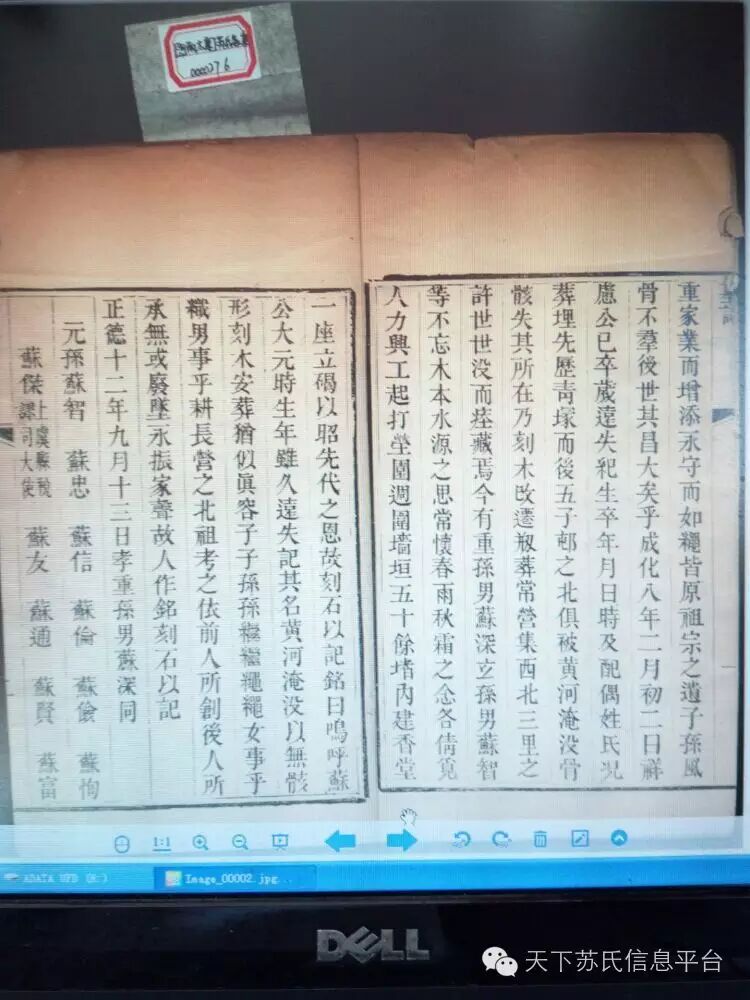 0000276
重家業而增添永守而如繩皆原祖宗之遺子孫風
骨不羣後世其昌大矣乎成化八年二月初二日祥
慮公已卒歲遠失紀生卒年月日時及配偶姓氏況
葬埋先歷靑塚而後五子邨之北俱被黃河淹没骨
骸失其所在乃刻木改遷瓶葬常營集西北三里之
許世世没而痊藏焉今有重孫男蘇深玄孫男蘇智
等不忘木本水源之思常懷春雨秋霜之念各倩覓
人力興工起打塋圍週圍墻垣五十餘堵內建香堂
一座立碣以昭先代之恩故刻石以記銘曰嗚呼蘇
公大元時生年雖久遠失記其名黃河淹没以無骸
形刻木安葬猶似眞容子子孫孫繼繼繩繩女事乎
織男事乎耕長營之北祖考之依前人所創後人所
承無或廢墜永振家聲故人作銘刻石以記
正德十二年九月十三日孝重孫男蘇深同
元孫蘇智 蘇忠 蘇信 蘇倫 蘇儉 蘇恂
蘇傑上虞縣稅課司大使 蘇友 蘇通 蘇賢 蘇富
1:1
ADATA UFD (H:)
Image_00002.jpg...
DELL
天下苏氏信息平台